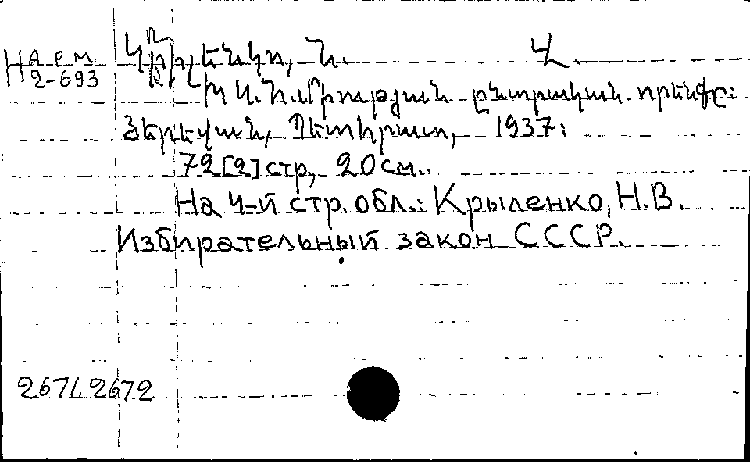 На рм Կրիլենկո, Ն. Վ.
2-693
ԽՍՀՄիության ընտրական որենքը։
Յերեվան, Պետհրատ, 1937։
72[2]стр, 20см.
На 4-й стр. обл.: Крыленко, Н.В.
Избирательный закон СССР.
267/2672